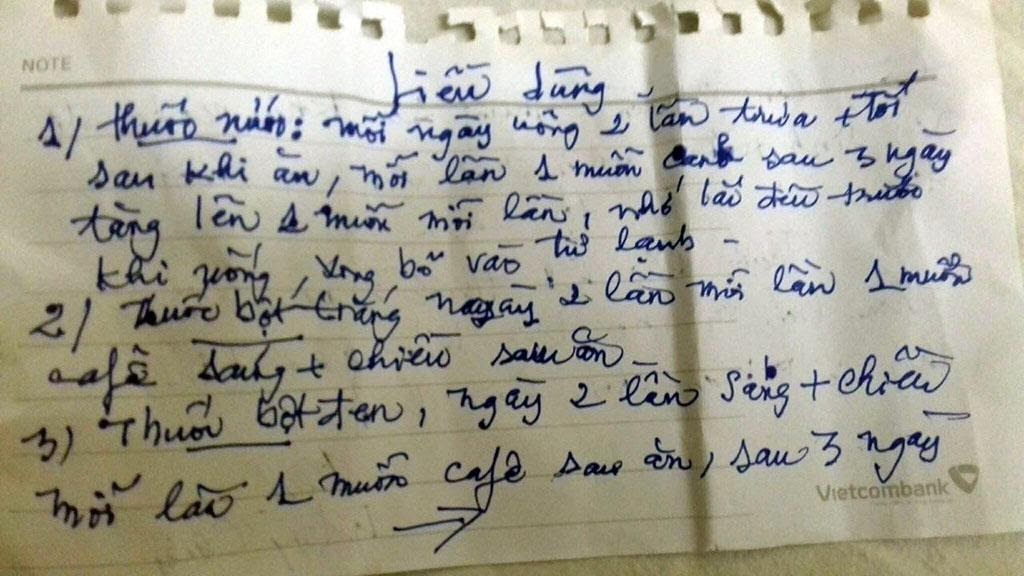 NOTE
Liều dùng
1/ thuốc nước: mỗi ngày uống 2 lần trưa + tối
sau khi ăn, mỗi lần 1 muỗn canh sau 3 ngày
tăng lên 1 muỗn mỗi lần, nhớ lắc đều trước
khi uống, xong bỏ vào tủ lạnh -
2/ Thuốc bột trắng ngày 2 lần mỗi lần 1 muỗn
café sáng + chiều sau ăn
3) Thuốc bột đen, ngày 2 lần sáng + chiều
mỗi lần 1 muỗn café sau ăn, sau 3 ngày
Vietcombank